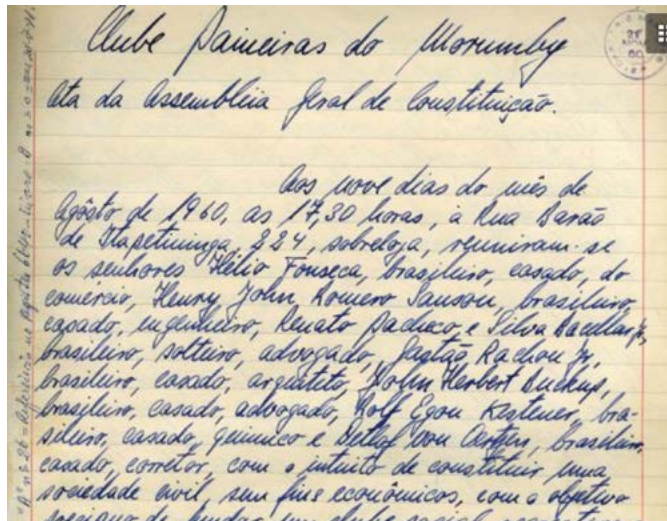 Clube Paineiras do Morumby
Ata da Assembléia Geral de Constituição.
Aos nove dias do mês de
Agôsto de 1960, as 17,30 horas, à Rua Barão
de Itapetininga, 224, sobreloja, reuniram-se
os senhores Hélio Fonseca, brasileiro, casado, do
comércio, Henry John Romero Sanson, brasileiro,
casado, engenheiro, Renato Pacheco e Silva Bacellar Jr,
brasileiro, solteiro, advogado, Gastão Rachou Jr,
brasileiro, casado, arquiteto, John Herbert Buckup,
brasileiro, casado, advogado, Rolf Egon Kestener, bra-
sileiro, casado, químico e Detlof von Oertzen, brasileiro,
casado, corretor, com o intuito de constituir uma
sociedade civil, sem fins econômicos, com o objetivo